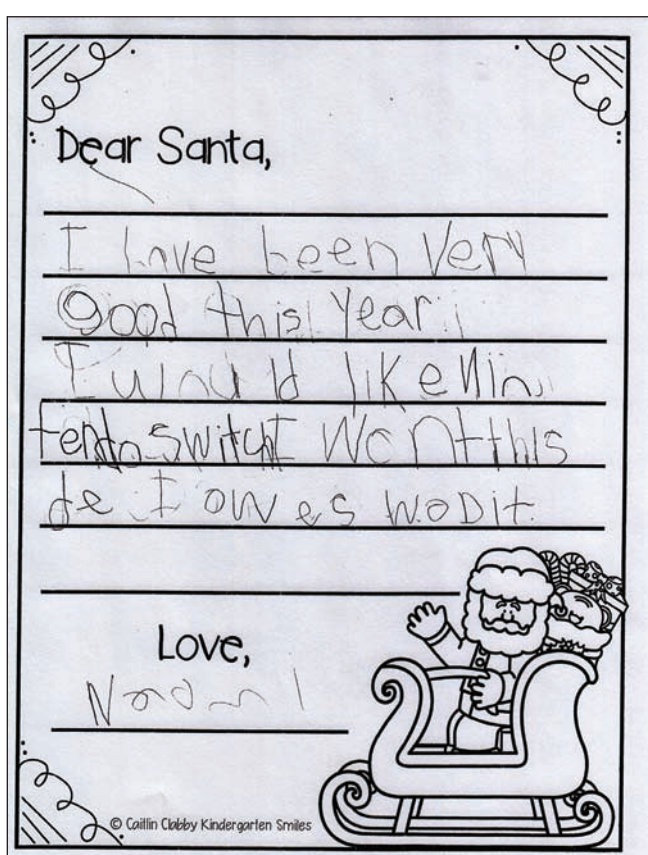 Dear Santa,
I have been very
Good this year.
I would like Nin
tendo switch I wont this
de I owes wodit.
Love,
Naomi
© Caitlin Clabby Kindergarten Smiles